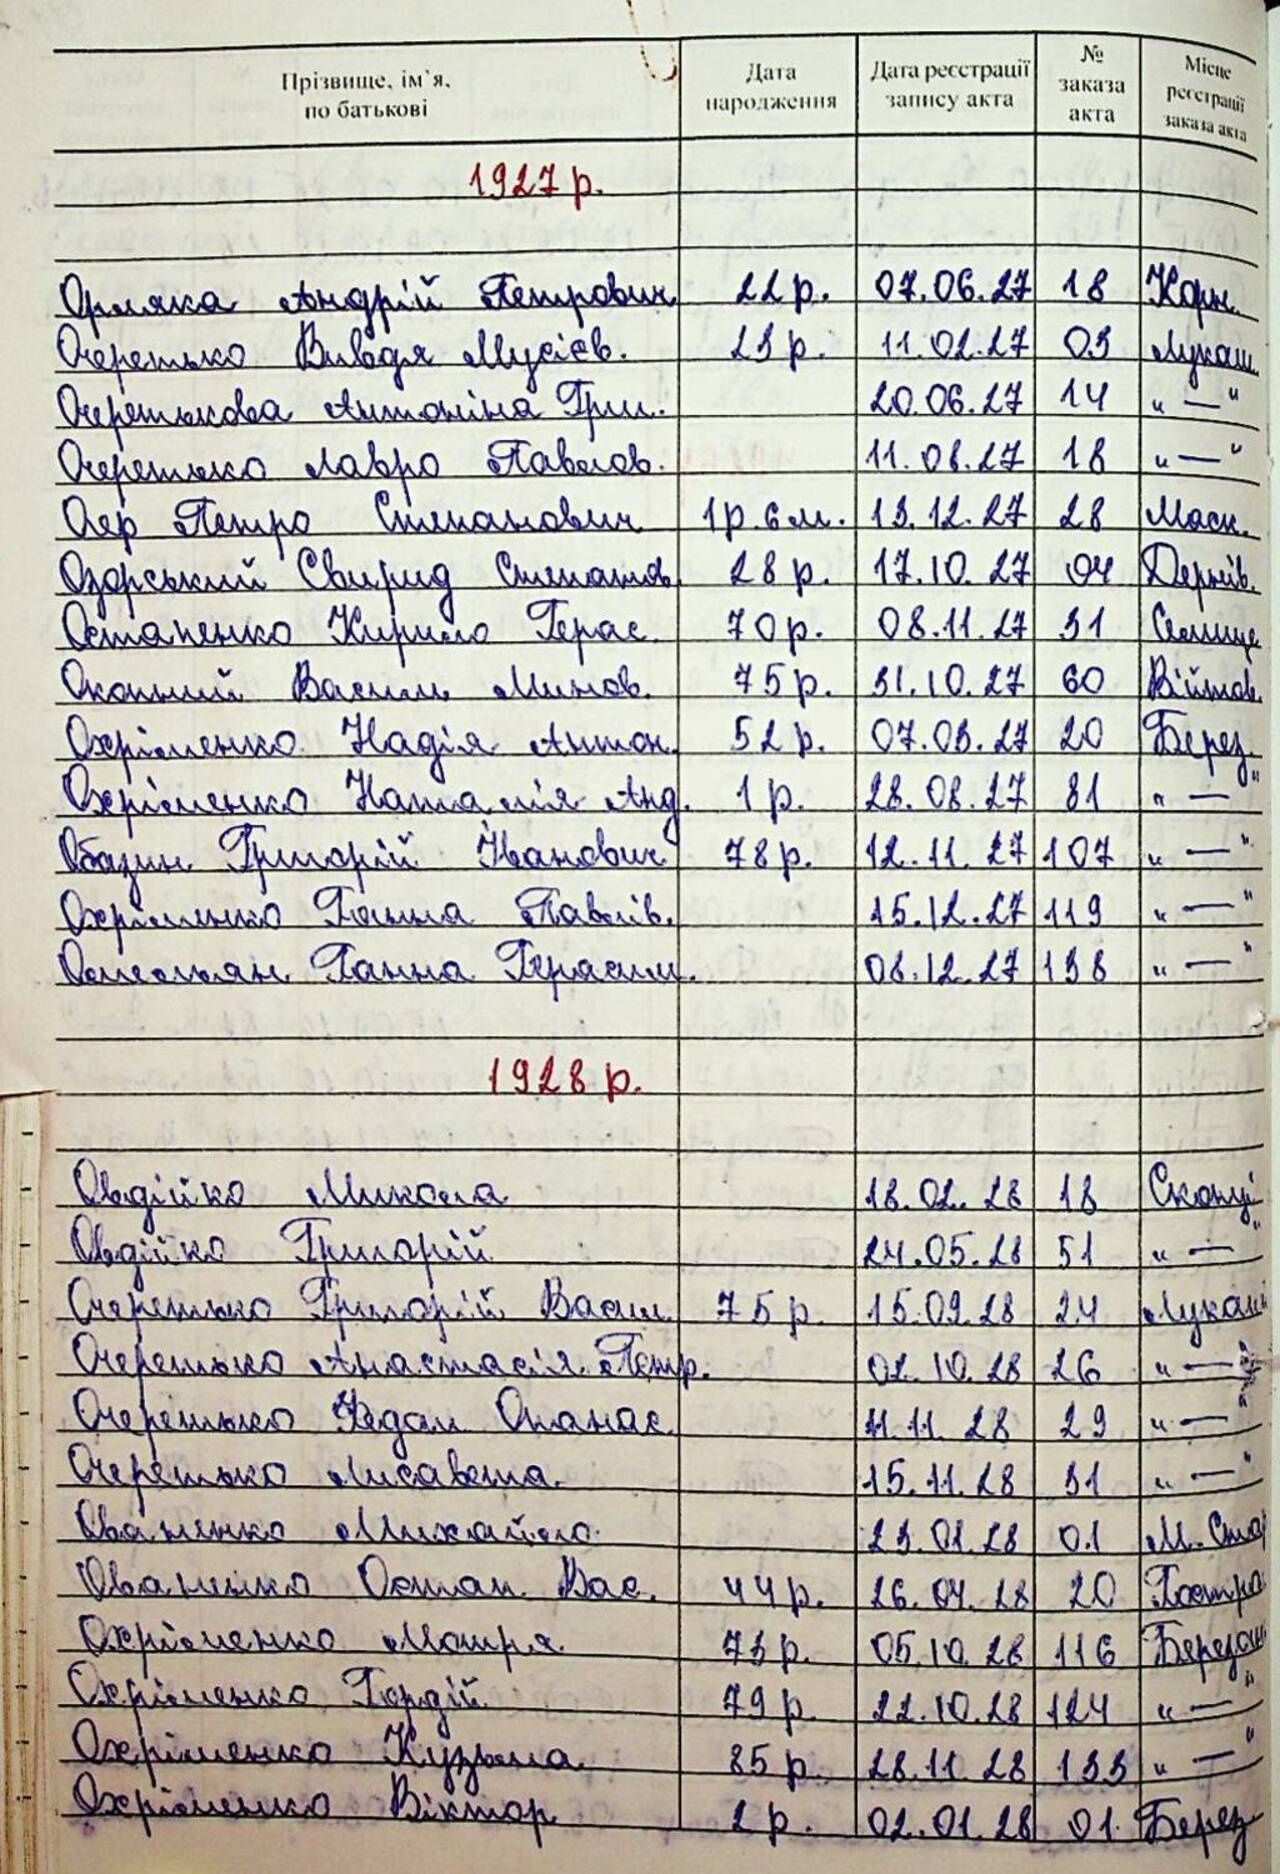 Прізвище, ім'я, по батькові Дата народження Дата реєстрації запису акта № заказа акта Місце реєстрації заказа акта
1927 р.
Орляка Андрій Петрович 22 р. 07.06.27 18 Корн.
Очеретько Вивдя Мусієв. 23 р. 11.02.27 03 Лукаш.
Очеретькова Антоніна Гри. 20.06.27 14 "—"
Очеретько Лавро Павлов. 11.08.27 18 "—"
Оер Петро Степанович 1 р. 6 м. 13.12.27 28 Маск.
Озорський Свирид Степанов. 28 р. 17.10.27 04 Дернів.
Остапенко Кирило Герас. 70 р. 08.11.27 31 Селище
Окопний Василь Минов. 75 р. 31.10.27 60 Війтов.
Охріменко Надія Антон. 52 р. 07.03.27 20 Берез.
Охріменко Наталія Анд. 1 р. 28.08.27 81 "—"
Обазин Григорій Іванович 78 р. 12.11.27 107 "—"
Охріменко Ганна Павлів. 15.12.27 119 "—"
Омельян Ганна Герасим. 08.12.27 138 "—"
1928 р.
Овдійко Микола 18.02.28 18 Скопці
Овдійко Григорій 24.05.28 51 "—"
Очеретько Григорій Васил. 75 р. 15.09.28 24 Лукаш
Очеретько Анастасія Петр. 02.10.28 26 "—"
Очеретько Федал Опанас. 11.11.28 29 "—"
Очеретько Лисавета. 15.11.28 31 "—"
Ованенко Михайло 23.01.28 01 М. Стар
Ованенко Остап Вас. 44 р. 26.04.28 20 Гостро
Охріменко Мотря 73 р. 05.10.28 116 Березан
Охріменко Гордій 79 р. 22.10.28 124 "—"
Охріменко Кузьма 85 р. 28.11.28 133 "—"
Охріменко Віктор 2 р. 02.01.28 01 Берез